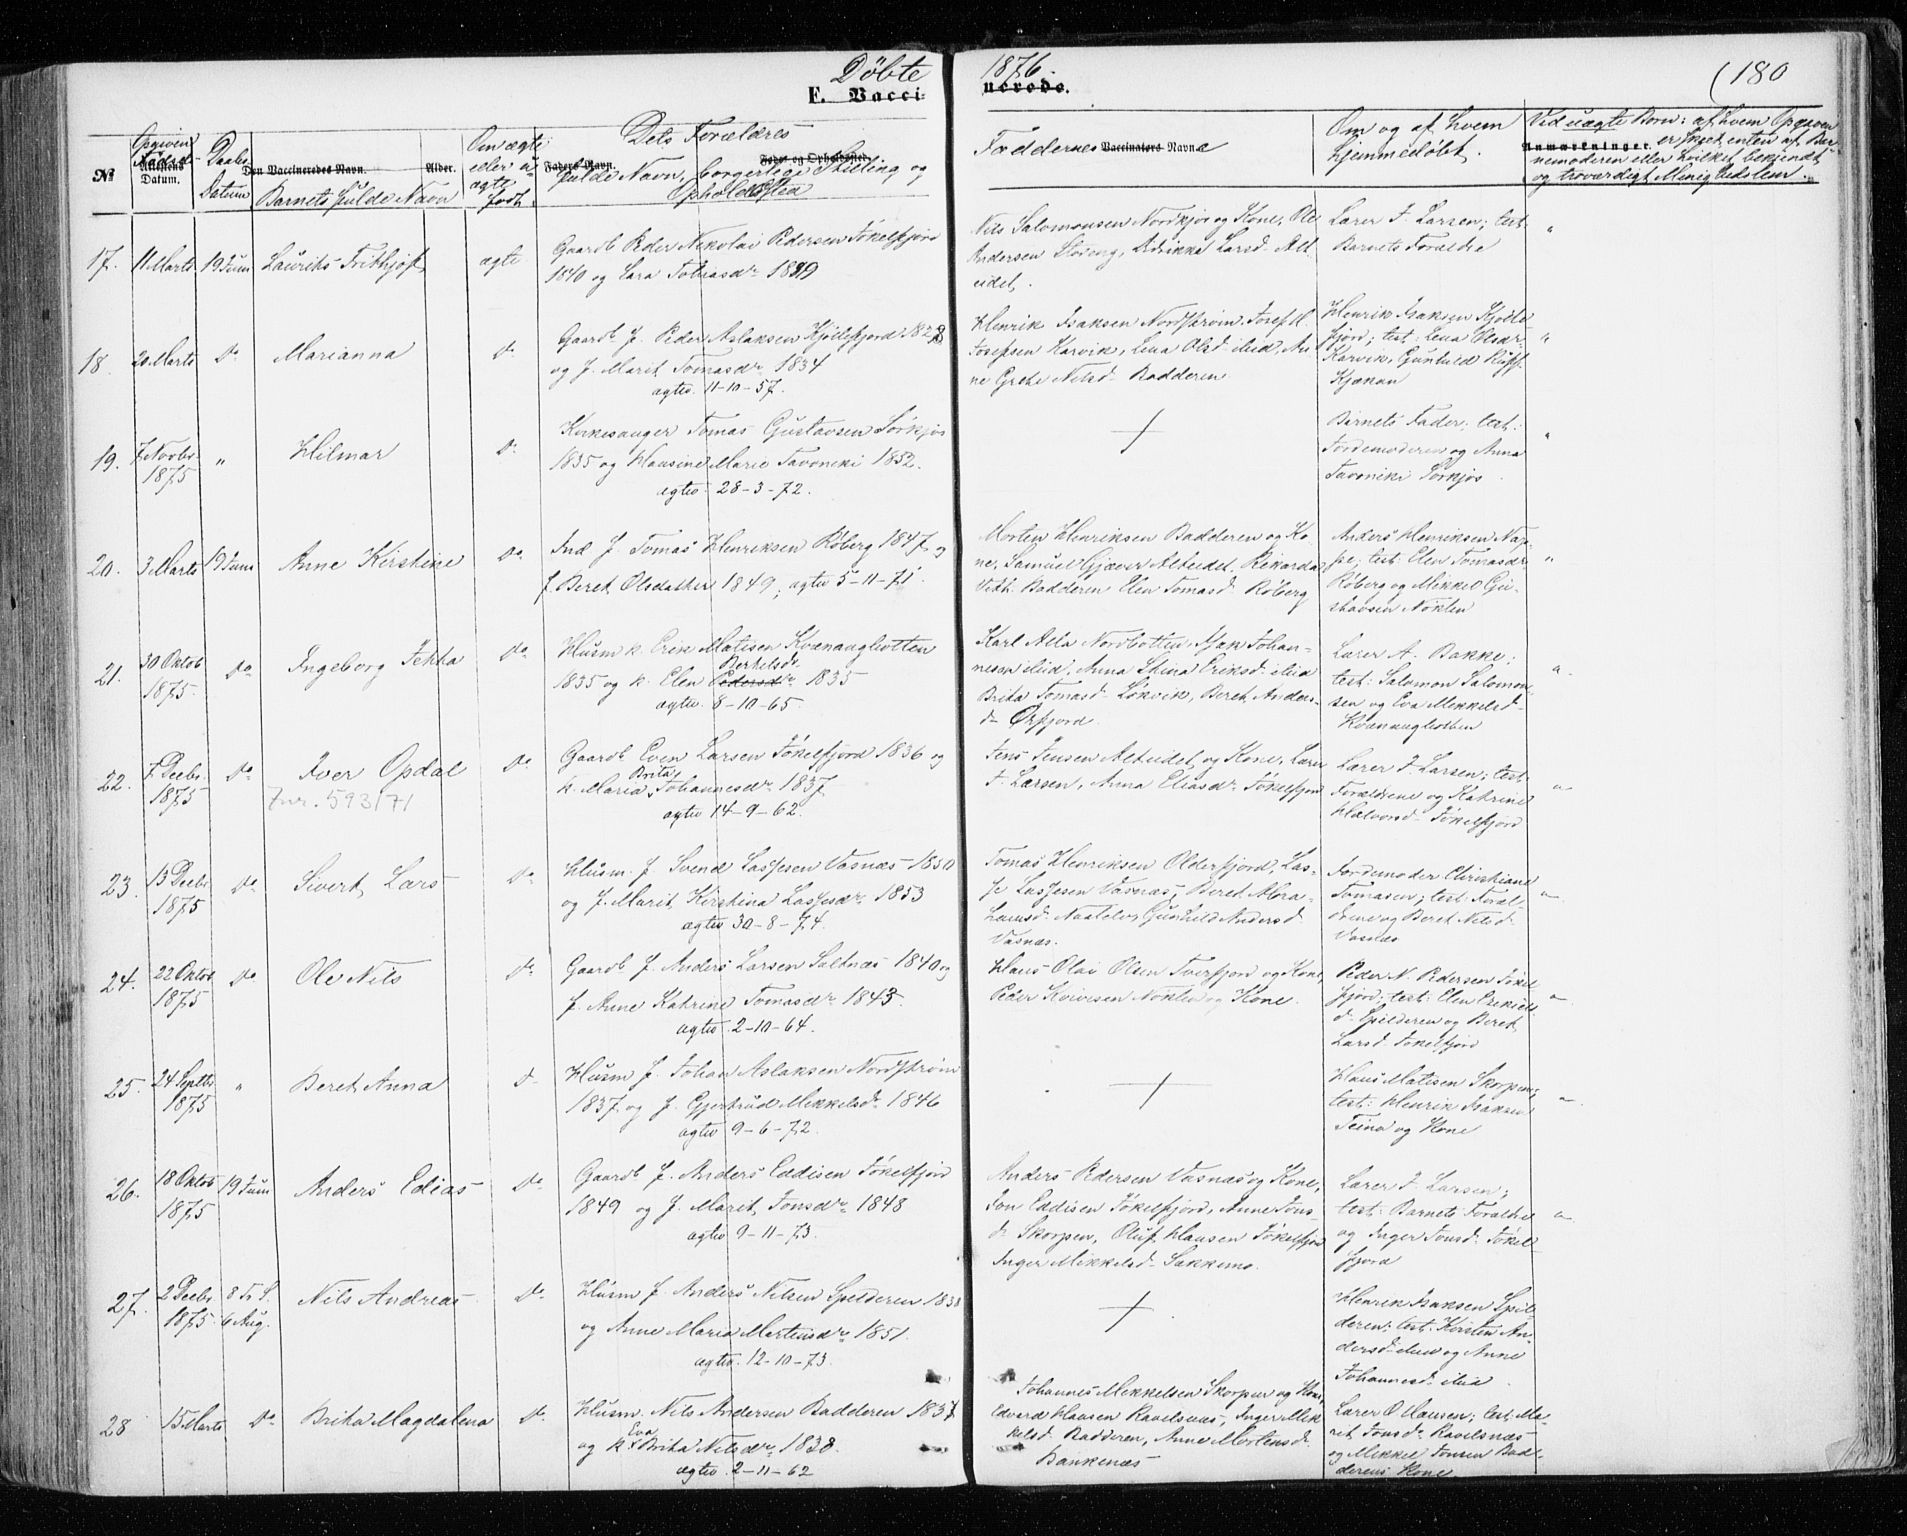 Døbte 1876. (180
F. Vacci- nerede.
No
Opgiven Fødsels Datum.
Attestens
Daabs Datum
Den Vaccineredes Navn. Alder.
Barnets fulde Navn
Om ægte eller uægte født.
Dets Forældres
Faders Navn. Føde og Opholdssted.
fulde Navn, borgerlige Stilling og Opholdssted
Faddernes Vaccinators Navn
Om og af hvem hjemmedøbt.
Anmærkninger.
Ved uægte Børn: af hvem Opgiven er skeet, enten af Barnemoderen eller hvilket bekjendt og troværdigt Menighedslem.
17. 11 Marts 19 Juni Laurits Frithjof ægte
Gaardb Peder Nikolai Pedersen Jøkelfjord
1840 og Lara Tomasdr 1849
Nils Salomonsen Nordkjos og Kone, Ole
Andersen Storeng, Larsd. Alteidet.
Lærer J. Larsen; test:
Barnets Forældre "
18. 20 Marts Do Marianna Do
Gaardb f. Peder Aslaksen Kjøllefjord 1828
og f. Marit Tomasdr 1834
ægtev. 11-10-57.
Henrik Isaksen Nordstrøm, Josef H.
Josefsen Karvik, Lena Olsd ibid, Anne Grete Nilsd. Badderen
Henrik Isaksen
fjord; test: Lena Olsdr
Karvik, Gunhild
Kjækan "
19. 7 Novbr. 1875 " Hilmar Do
Kirkesanger Tomas Gustavsen Sørkjos
1835 og Hansine Marie Tavoniki 1852.
ægtev. 28-3-72.
+
Barnets Fader; test:
Jordemoderen og Anna
Tavoniki Sørkjos. "
20. 3 Marts 19 Juni Anne Kirstine Do
Ind f. Tomas Henriksen Røberg 1847 og
f. Beret Olsdatter 1849; ægtev 5-11-71.
Morten Henriksen Badderen og Kone, Samuel Gjæver Alteidet, Rikarda
Badderen Elen Tomasd. Røberg
Anders Henriksen
test: Elen Tomasdr
Røberg og Mikkel Gustavsen Noklen "
21. 30 Oktob 1875. Do Ingeborg Do
Husm k. Erik Matisen Kvænangbotten
1835 og k. Elen Pedersdr Bertelsdr 1835
ægtev. 8-10-65.
Karl Nordbotten, Isak Johannessen ibid, Anna Stina Eriksd. ibid
Brita Tomasd. Løkvik, Beret Andersd. Oxfjord.
Lærer A. Bakke;
test: Salomon Salomonsen og Eva Mikkelsd.
Kvænangbotten "
22. 7 Decbr. 1875 Do Iver Opdal Do
Jnr. 593/71
Gaardb Even Larsen Jøkelfjord 1836 og
k. Maria Brita Johannesdr 1837
ægtev 14-9-62.
Jens Jensen Alteidet og Kone, Lærer
J. Larsen, Anna Eliasdr Jøkelfjord
Lærer J. Larsen; test:
Forældrene og Katrine
Halvorsd. Jøkelfjord "
23. 15 Decbr 1875 Do Sivert Lars Do
Husm. f. Svend Lassesen Vasnæs 1850
og f. Marit Kirstina Lassesdr 1853
ægtev 30-8-74.
Tomas Henriksen Olderfjord, Lasse Lassesen Vasnæs, Beret Gunhild Andersd
Vasnæs.
Jordemoder Christiane
Tomasen; test: Forældrene og Beret Nilsd
Vasnæs "
24. 22 Oktob 1875 Do Ole Nils Do
Gaardb f. Anders Larsen Saltnæs 1840 og
f. Anne Katrine Tomasdr 1843.
ægtev. 2-10-64.
Hans Olai Olsen Tverfjord og Kone,
Peder Noklen og Kone.
Peder N. Pedersen Jøkelfjord; test: Elen
Spilderen og Beret
Larsd. Jøkelfjord "
25. 24 Septbr 1875 " Beret Anna Do
Husm f. Johan Aslaksen Nordstrøm
1837 og f. Gjertrud Mikkelsdr 1846
ægtev 9-6-72.
+
Hans Matisen Skorpen;
test: Henrik Isaksen
og Kone "
26. 18 Oktob 1875 19 Juni Anders Edias Do
Gaardb f. Anders Eddisen Jøkelfjord
1849 og f. Marit Jonsdr 1848
ægtev 9-11-73.
Anders Pedersen Vasnæs og Kone,
Jon Eddisen Jøkelfjord, Anne Jonsdr Skorpen, Oluf Hansen Jøkelfjord
Inger Mikkelsd.
Lærer J. Larsen;
test: Barnets Forældre
og Inger Jonsd. Jøkelfjord "
27. 2 Decbr 1875. 8 Tr S. 6 Aug. Nils Andreas Do
Husm f. Anders Nilsen Spilderen 1838
og Anne Maria Martinsdr 1851.
ægtev. 12-10-73.
+
Henrik Isaksen Spilderen; test: Kirsten Andersd. ibid og Anne
Johannesd. ibid.
28 15 Marts Do Brita Magdalena Do
Husm. Nils Andersen Badderen 1837
og k. Eva Brita Nilsdr 1838.
ægtev 2-11-62
Johannes Mikkelsen Skorpen og Kone,
Edvard Hansen Ravelsnæs, Inger Mikkelsd. Badderen, Anne Mortensd.
Bankenæs
Lærer O. Hansen; test: Maret Jonsdr Ravelsnæs
og Mikkel Jonsen Badderens Kone